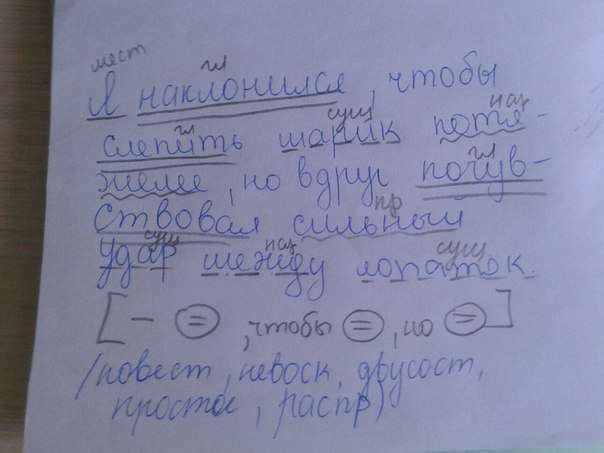 мест гл
Я наклонился, чтобы
гл сущ нах
слепить шарик потя-
гл
желее, но вдруг почув-
пр
ствовал сильный
сущ нах сущ
удар между лопаток.
[– (=), чтобы (=), но (=)]
/повест, невоск, двусост,
простое, распр)